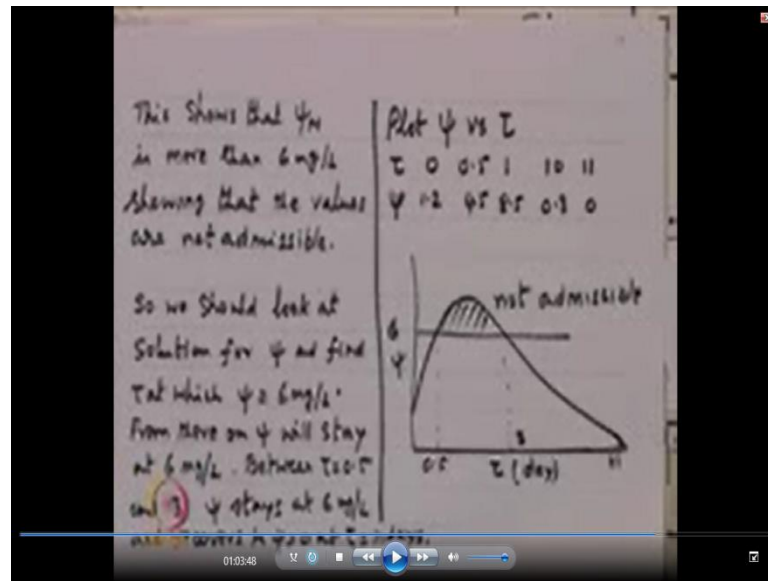 This Shows that ψM
is more than 6 mg/L
showing that the values
are not admissible.
So we should look at
Solution for ψ and find
τ at which ψ = 6 mg/L.
From there on ψ will stay
at 6 mg/L. Between τ = 0.5
and 3 ψ stays at 6 mg/L
Plot ψ vs τ
τ 0 0.5 1 10 11
ψ 1.2 4.5 8.5 0.8 0
not admissible
6
ψ
0.5 τ (day) 3 11
01:03:48